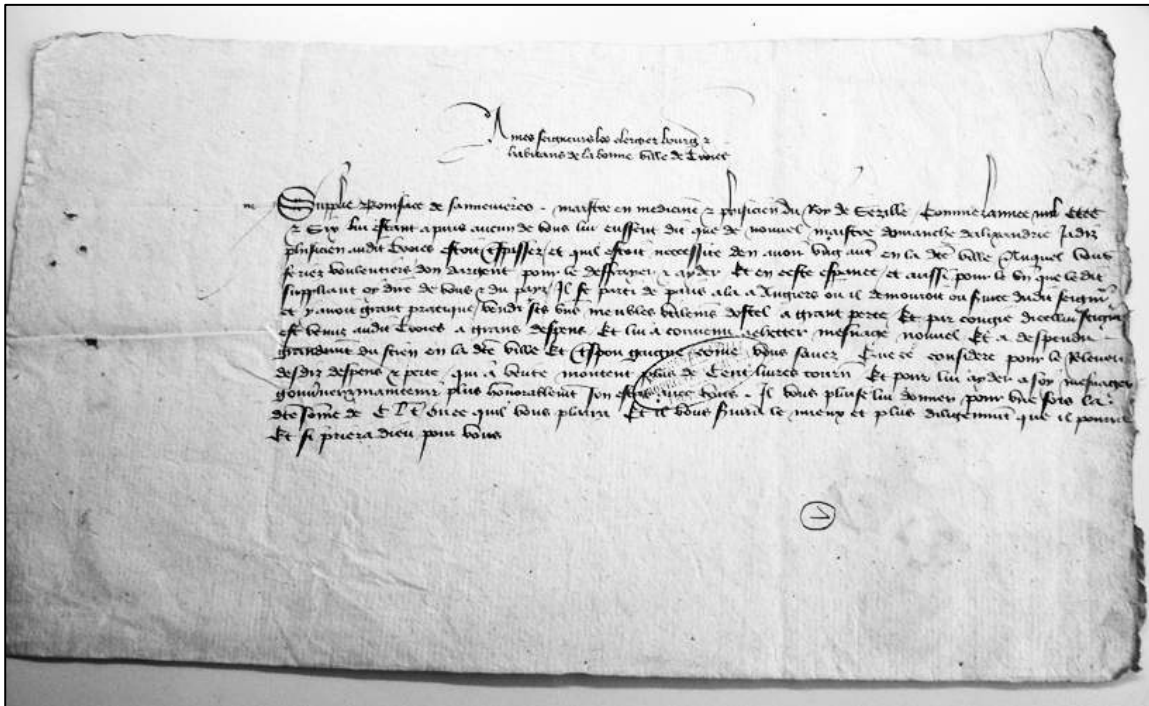 A mes seigneurs les clergier bourg 2
habitans de la bonne ville de Troies
Supplie Boniface de sannevieres maistre en medicine 2 phisicien du Roy de Sezille Comme lannee mil CCCC
2 Six lui estant a paris aucun de vous lui eussent dit que de nouvel maistre domanche dalixandrie Jadiz
phisicien audit Troies estoit et quil estoit necessite den avoir ung aut en la dte ville Auquel vous
feriez voulentiers don dargent pour le deffrayer 2 ayder Et en ceste esperance et aussi pour le bn que le dit
suppliant oy dire de vous 2 du pays Il se parti de paris ala a Angiers ou il demouroit ou fvice dudit seigneur
et y avoit grant pratique vendi ses bns meubles dostel a grant perte Et par congie dicellui seigneur
est venus audit Troies a grans despens Et lui a convenu acheter mesnaige nouvel Et a despendu
grandmnt du sien en la dte ville Et pou gaigne come vous savez Que ce considere pour le Relever
desdiz despens 2 perte qui a montent plus de Cent livres tourn Et pour lui ayder a son mesnaiger
gouvner 2 maintenir plus honorablemnt son estat avec vous Il vous plaise lui donner pour une fois la
dte some de C l t ou ce quil vous plaira Et il vous fvira le mieux et plus diligemmnt que il pourra
Et si priera dieu pour vous